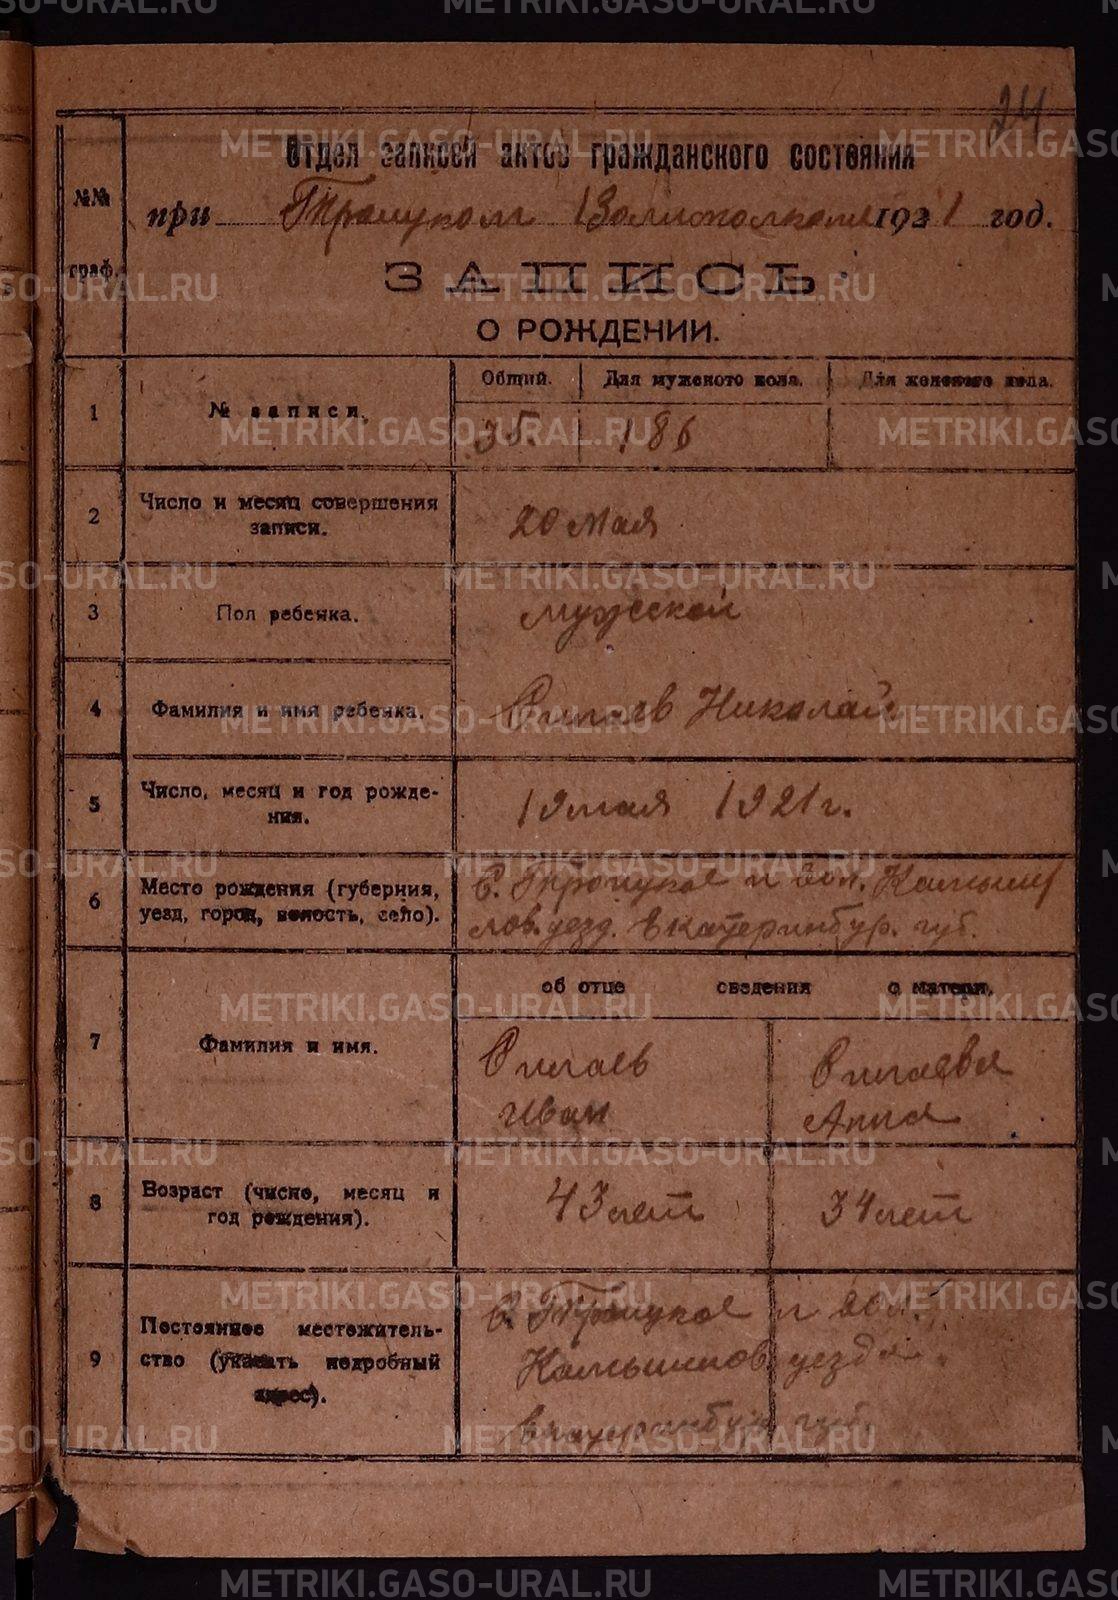 24
Отдел записей актов гражданского состояния
при Троицком Волисполкоме 1921 год.
№№ граф.
ЗАПИСЬ
О РОЖДЕНИИ.
1 № записи. Общий. Для мужского пола. Для женского пола.
35. 18
2 Число и месяц совершения записи. 20 мая
3 Пол ребенка. мужской
4 Фамилия и имя ребенка. Николай
5 Число, месяц и год рождения. 19 мая 1921 г.
6 Место рождения (губерния, уезд, город, волость, село). С. Троицкое и вол. Камыш
лов. уезд. Екатеринбур. губ.
об отце сведения о матери.
7 Фамилия и имя.
Иван Анна
8 Возраст (число, месяц и год рождения). 43 лет 34 лет
9 Постоянное местожительство (указать подробный адрес). С. Троицкое и вол.
Камышлов. уезда
Екатеринбур губ.
METRIKI.GASO-URAL.RU